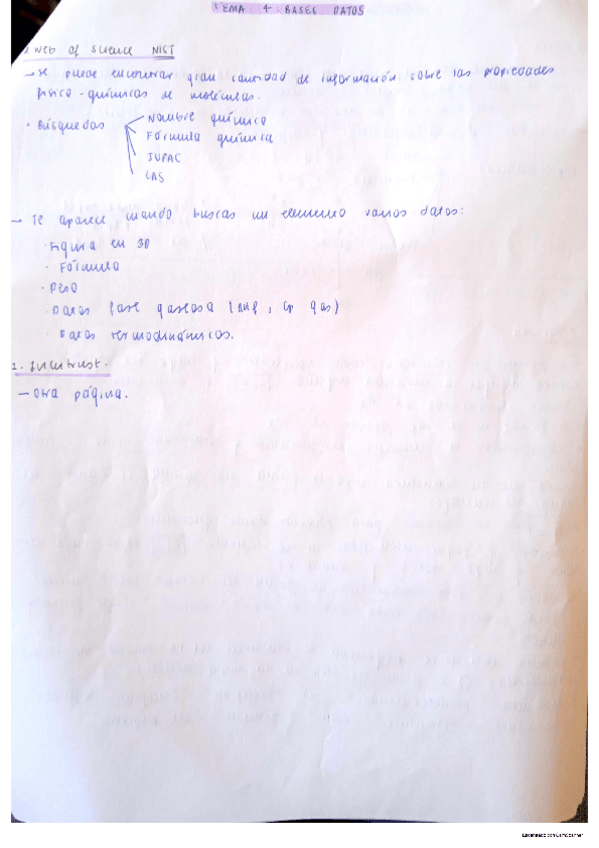 TEMA 4. BASES DATOS
1. Web of Science NIST
→ Se puede encontrar gran cantidad de información sobre las propiedades
físico-químicas de moléculas.
· Búsquedas
Nombre químico
Fórmula química
IUPAC
CAS
→ Te aparece cuando buscas un elemento varios datos:
· Figura en 3D
· Fórmula
· Peso
· Datos fase gaseosa (ΔHf, Cp gas)
· Datos termodinámicos.
2.
— Otra página.